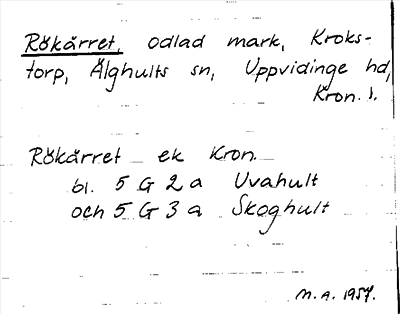 Rökärret, odlad mark, Kroks-
torp, Älghults sn, Uppvidinge hd,
Kron. l.
Rökärret ek Kron.
bl. 5 G 2 a Uvahult
och 5 G 3 a Skoghult
M.A. 1957.